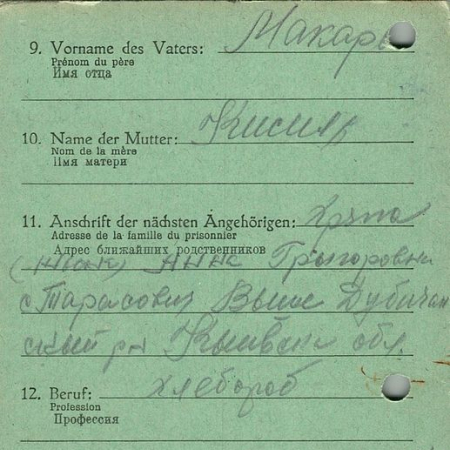 9. Vorname des Vaters: Макар
Prénom du père
Имя отца
10. Name der Mutter: Кисиль
Nom de la mère
Имя матери
11. Anschrift der nächsten Angehörigen: Хряпа
Adresse de la famille du prisonnier
Адрес ближайших родственников
Анна Григоровна
с Тарасович Выше Дубечан
ский рн обл.
12. Beruf: хлебороб
Profession
Профессия